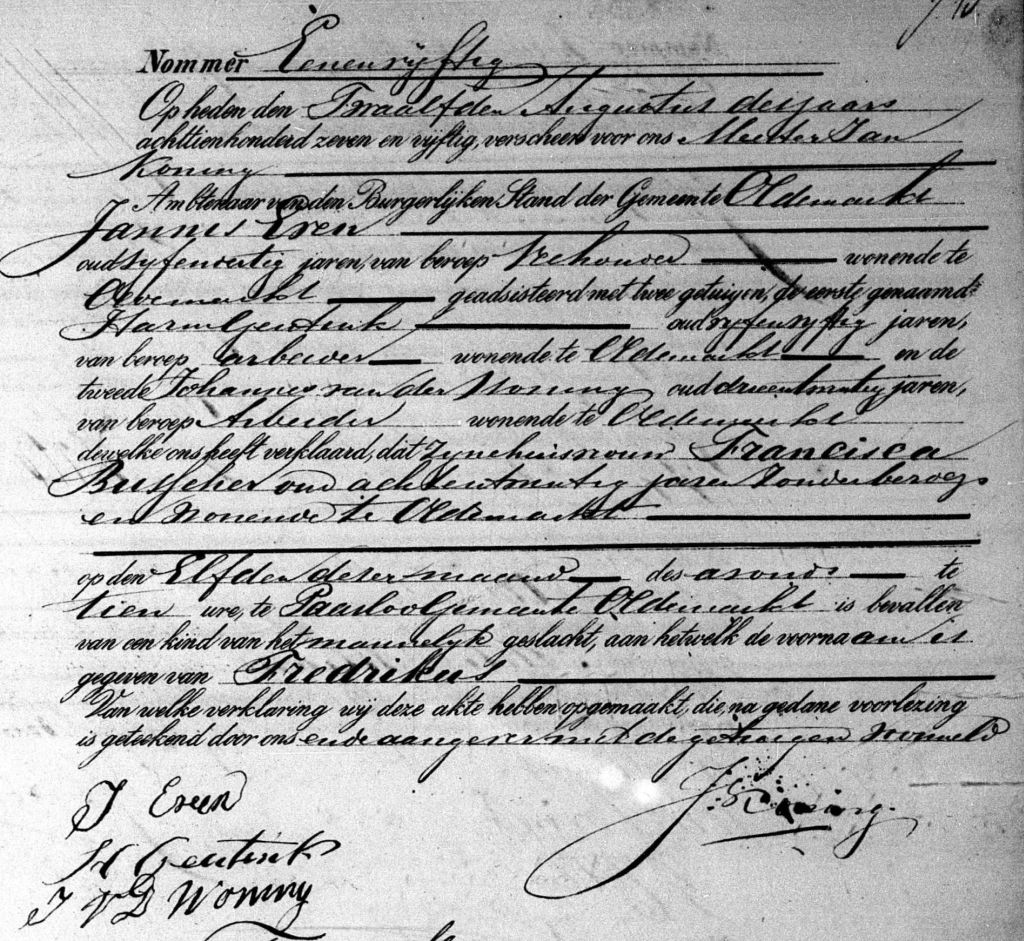 Nommer Eenenvijftig
Op heden den Twaalfden Augustus des jaars
achttienhonderd zeven en vijftig, verscheen voor ons Meester Jan
Koning
Ambtenaar van den Burgerlijken Stand der Gemeente Oldemarkt
Jannes Eren
oud vyfenveertig jaren, van beroep Veehouder wonende te
Oldemarkt geadsisteerd met twee getuigen, de eerste genaamd
Harm Gentink oud vyfenvyftig jaren,
van beroep arbeider wonende te Oldemarkt en de
tweede Johannes van der Woning oud drieentwintig jaren,
van beroep Arbeider wonende te Oldemarkt
dewelke ons heeft verklaard, dat zyne huisvrouw Francisca
Busscher oud achtentwintig jaren zonder beroep
en wonende te Oldemarkt
op den Elfden dezer maand des avonds te
tien ure, te Paasloo Gemeente Oldemarkt is bevallen
van een kind van het mannelyk geslacht, aan hetwelk de voornaam is
gegeven van Fredrikus
Van welke verklaring wij deze akte hebben opgemaakt, die, na gedane voorlezing
is geteekend door ons en de aangever met de getuigen vermeld
J Eren
J. Koning.
H Gentink
J V D Woning